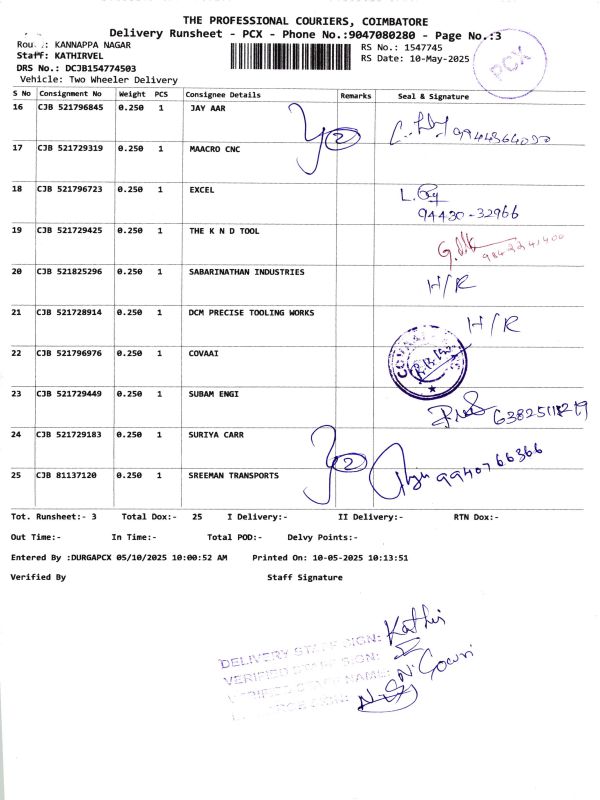 THE PROFESSIONAL COURIERS, COIMBATORE
Delivery Runsheet - PCX - Phone No.:9047080280 - Page No.:3
KANNAPPA NAGAR
RS No.: 1547745
Staff: KATHIRVEL
RS Date: 10-May-2025
PCX
DRS No.: DCJB154774503
Vehicle: Two Wheeler Delivery
S No Consignment No Weight PCS Consignee Details Remarks Seal & Signature
16 CJB 521796845 0.250 1 JAY AAR
2
17 CJB 521729319 0.250 1 MAACRO CNC
18 CJB 521796723 0.250 1 EXCEL
94430-32966
19 CJB 521729425 0.250 1 THE K N D TOOL
20 CJB 521825296 0.250 1 SABARINATHAN INDUSTRIES
H/R
21 CJB 521728914 0.250 1 DCM PRECISE TOOLING WORKS
H/R
22 CJB 521796976 0.250 1 COVAAI
23 CJB 521729449 0.250 1 SUBAM ENGI
24 CJB 521729183 0.250 1 SURIYA CARR
2
9940766366
25 CJB 81137120 0.250 1 SREEMAN TRANSPORTS
Tot. Runsheet:- 3 Total Dox:- 25 I Delivery:- II Delivery:- RTN Dox:-
Out Time:- In Time:- Total POD:- Delvy Points:-
Entered By :DURGAPCX 05/10/2025 10:00:52 AM Printed On: 10-05-2025 10:13:51
Verified By Staff Signature
DELIVERY STAFF SIGN: Kathir
VERIFIED STAFF SIGN:
VERIFIED STAFF NAME: N. Gowri
SIGN: